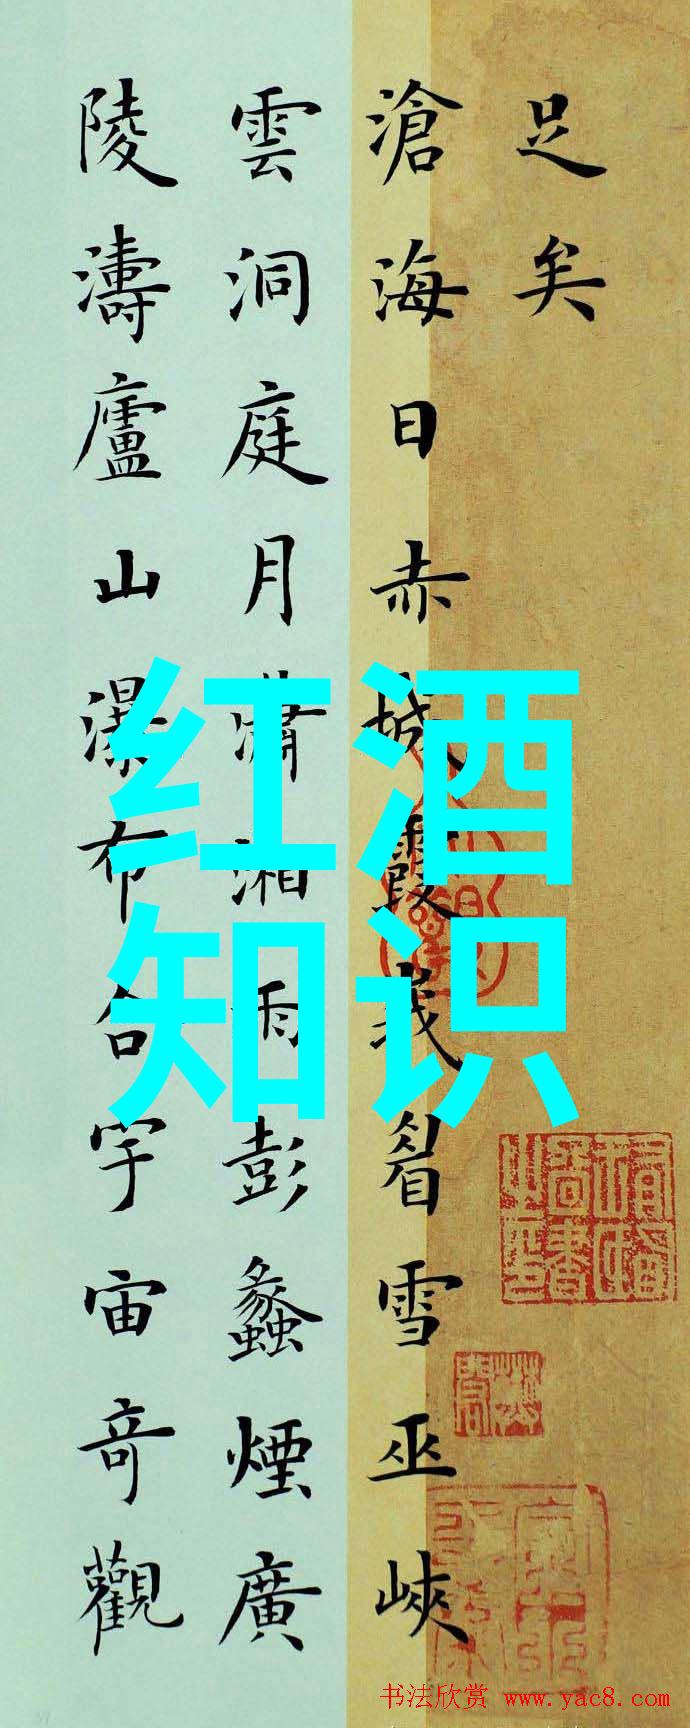 足矣
滄海日赤城霞峩眉雪巫峽
雲洞庭月瀟湘雨彭蠡煙廣
陵濤廬山瀑布合宇宙奇觀
红酒
知识
书法欣赏 www.yac8.com